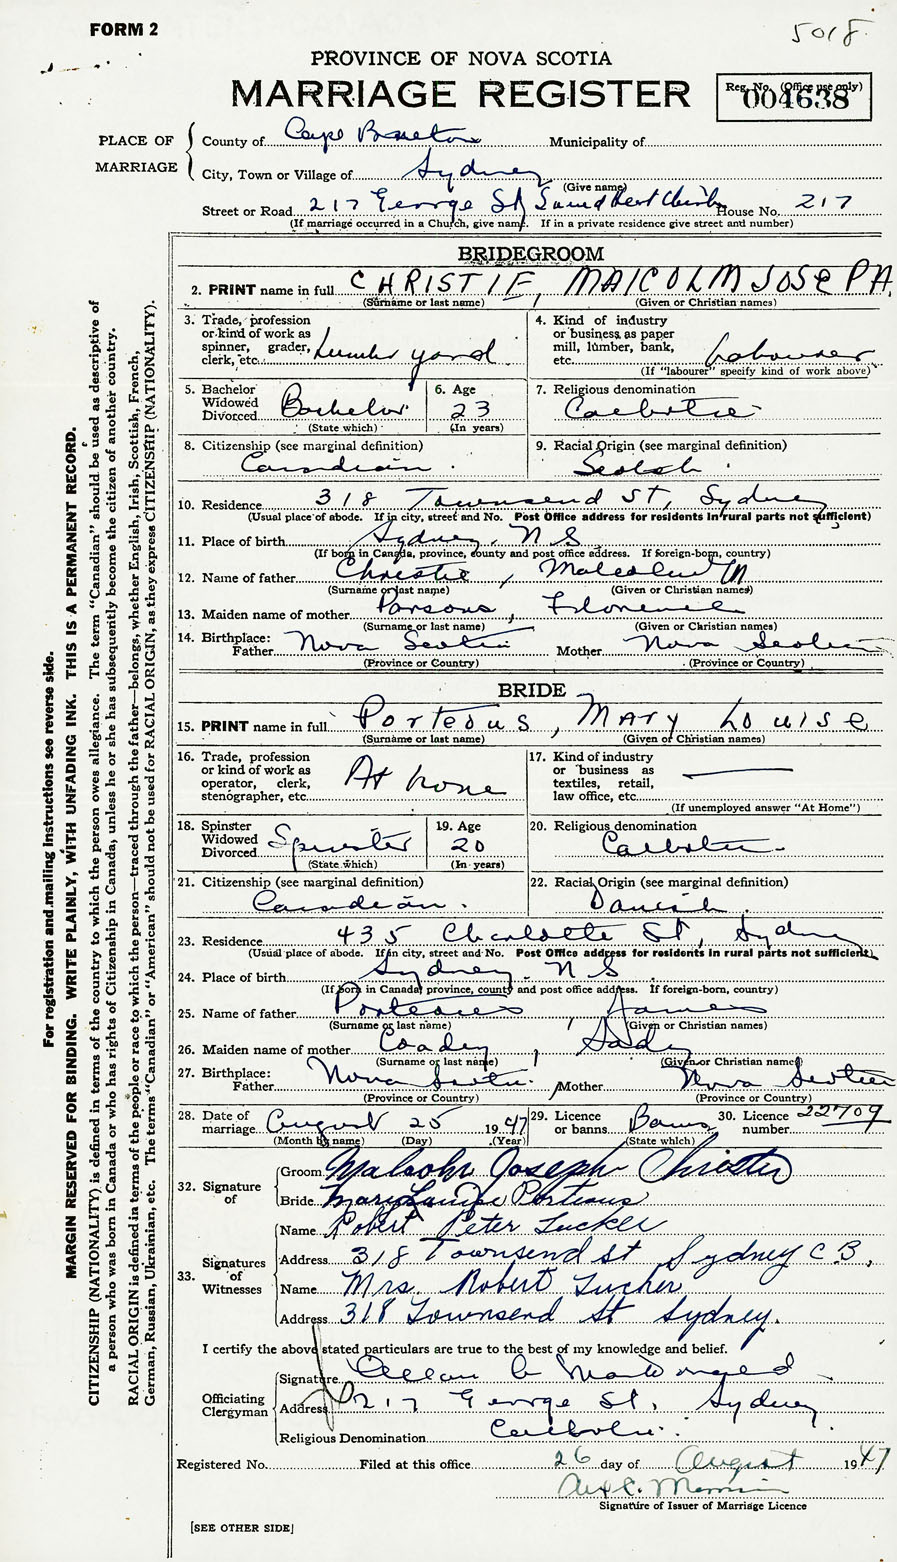 FORM 2
5018
PROVINCE OF NOVA SCOTIA
MARRIAGE REGISTER
Reg. No. (Office use only)
004638
PLACE OF MARRIAGE
County of Cape Breton Municipality of
City, Town or Village of Sydney
(Give name)
Street or Road 217 George St House No. 217
(If marriage occurred in a Church, give name. If in a private residence give street and number)
BRIDEGROOM
2. PRINT name in full CHRISTIE, MALCOLM JOSEPH
(Surname or last name) (Given or Christian names)
3. Trade, profession or kind of work as spinner, grader, clerk, etc. Lumber yard
4. Kind of industry or business, as paper mill, lumber, bank, etc. Labourer
(If "labourer" specify kind of work above)
5. Bachelor Widowed Divorced Bachelor
(State which)
6. Age 23
(In years)
7. Religious denomination Catholic
8. Citizenship (see marginal definition) Canadian
9. Racial Origin (see marginal definition) Scotch
10. Residence 318 Townsend St, Sydney
(Usual place of abode. If in city, street and No. Post Office address for residents in rural parts not sufficient)
11. Place of birth Sydney, N S
(If born in Canada, province, county and post office address. If foreign-born, country)
12. Name of father Christie, Malcolm M
(Surname or last name) (Given or Christian names)
13. Maiden name of mother Parsons, Florence
(Surname or last name) (Given or Christian names)
14. Birthplace: Father Nova Scotia Mother Nova Scotia
(Province or Country) (Province or Country)
BRIDE
15. PRINT name in full Porteous, Mary Louise
(Surname or last name) (Given or Christian names)
16. Trade, profession or kind of work as operator, clerk, stenographer, etc. At home
17. Kind of industry or business as textiles, retail, law office, etc.
(If unemployed answer "At Home")
18. Spinster Widowed Divorced Spinster
(State which)
19. Age 20
(In years)
20. Religious denomination Catholic
21. Citizenship (see marginal definition) Canadian
22. Racial Origin (see marginal definition) Danish
23. Residence 435 Charlotte St, Sydney
(Usual place of abode. If in city, street and No. Post Office address for residents in rural parts not sufficient)
24. Place of birth Sydney N S
(If born in Canada, province, county and post office address. If foreign-born, country)
25. Name of father Porteous, James
(Surname or last name) (Given or Christian names)
26. Maiden name of mother Coady, Sady
(Surname or last name) (Given or Christian names)
27. Birthplace: Father Nova Scotia Mother Nova Scotia
(Province or Country) (Province or Country)
28. Date of marriage August 25 1947
(Month by name) (Day) (Year)
29. Licence or banns Banns
(State which)
30. Licence number 22709
32. Signature of
Groom Malcolm Joseph Christie
Bride Mary Louise Porteous
33. Signatures of Witnesses
Name Robert Peter Tucker
Address 318 Townsend St Sydney C B,
Name Mrs. Robert Tucker
Address 318 Townsend St Sydney.
I certify the above stated particulars are true to the best of my knowledge and belief.
Officiating Clergyman
Signature Allan
Address 217 George St, Sydney
Religious Denomination Catholic
Registered No. Filed at this office 26 day of August 1947
Signature of Issuer of Marriage Licence
[SEE OTHER SIDE]
For registration and mailing instructions see reverse side.
MARGIN RESERVED FOR BINDING. WRITE PLAINLY, WITH UNFADING INK. THIS IS A PERMANENT RECORD.
CITIZENSHIP (NATIONALITY) is defined in terms of the country to which the person owes allegiance. The term "Canadian" should be used as descriptive of
a person who was born in Canada or who has rights of Citizenship in Canada, unless he or she has subsequently become the citizen of another country.
RACIAL ORIGIN is defined in terms of the people or race to which the person—traced through the father—belongs, whether English, Irish, Scottish, French,
German, Russian, Ukrainian, etc. The terms "Canadian" or "American" should not be used for RACIAL ORIGIN, as they express CITIZENSHIP (NATIONALITY).